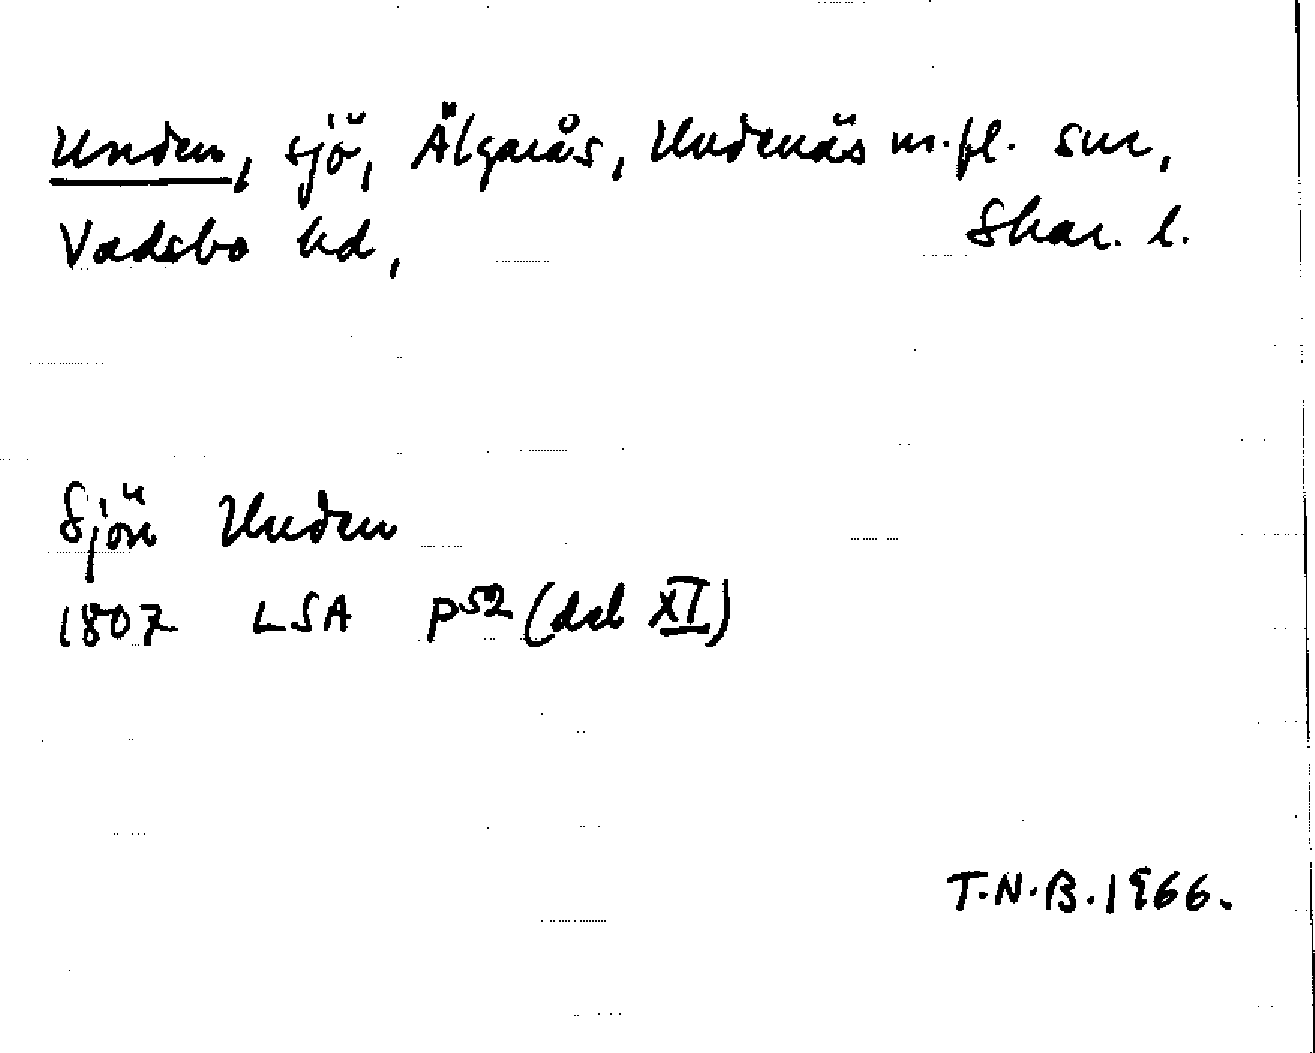 Unden, sjö, Älgarås, Undenäs m.fl. snr,
Vadsbo hd, Skar. l.
Sjön Unden
1807 LSA P52 (del XI)
T.N.B. 1966.